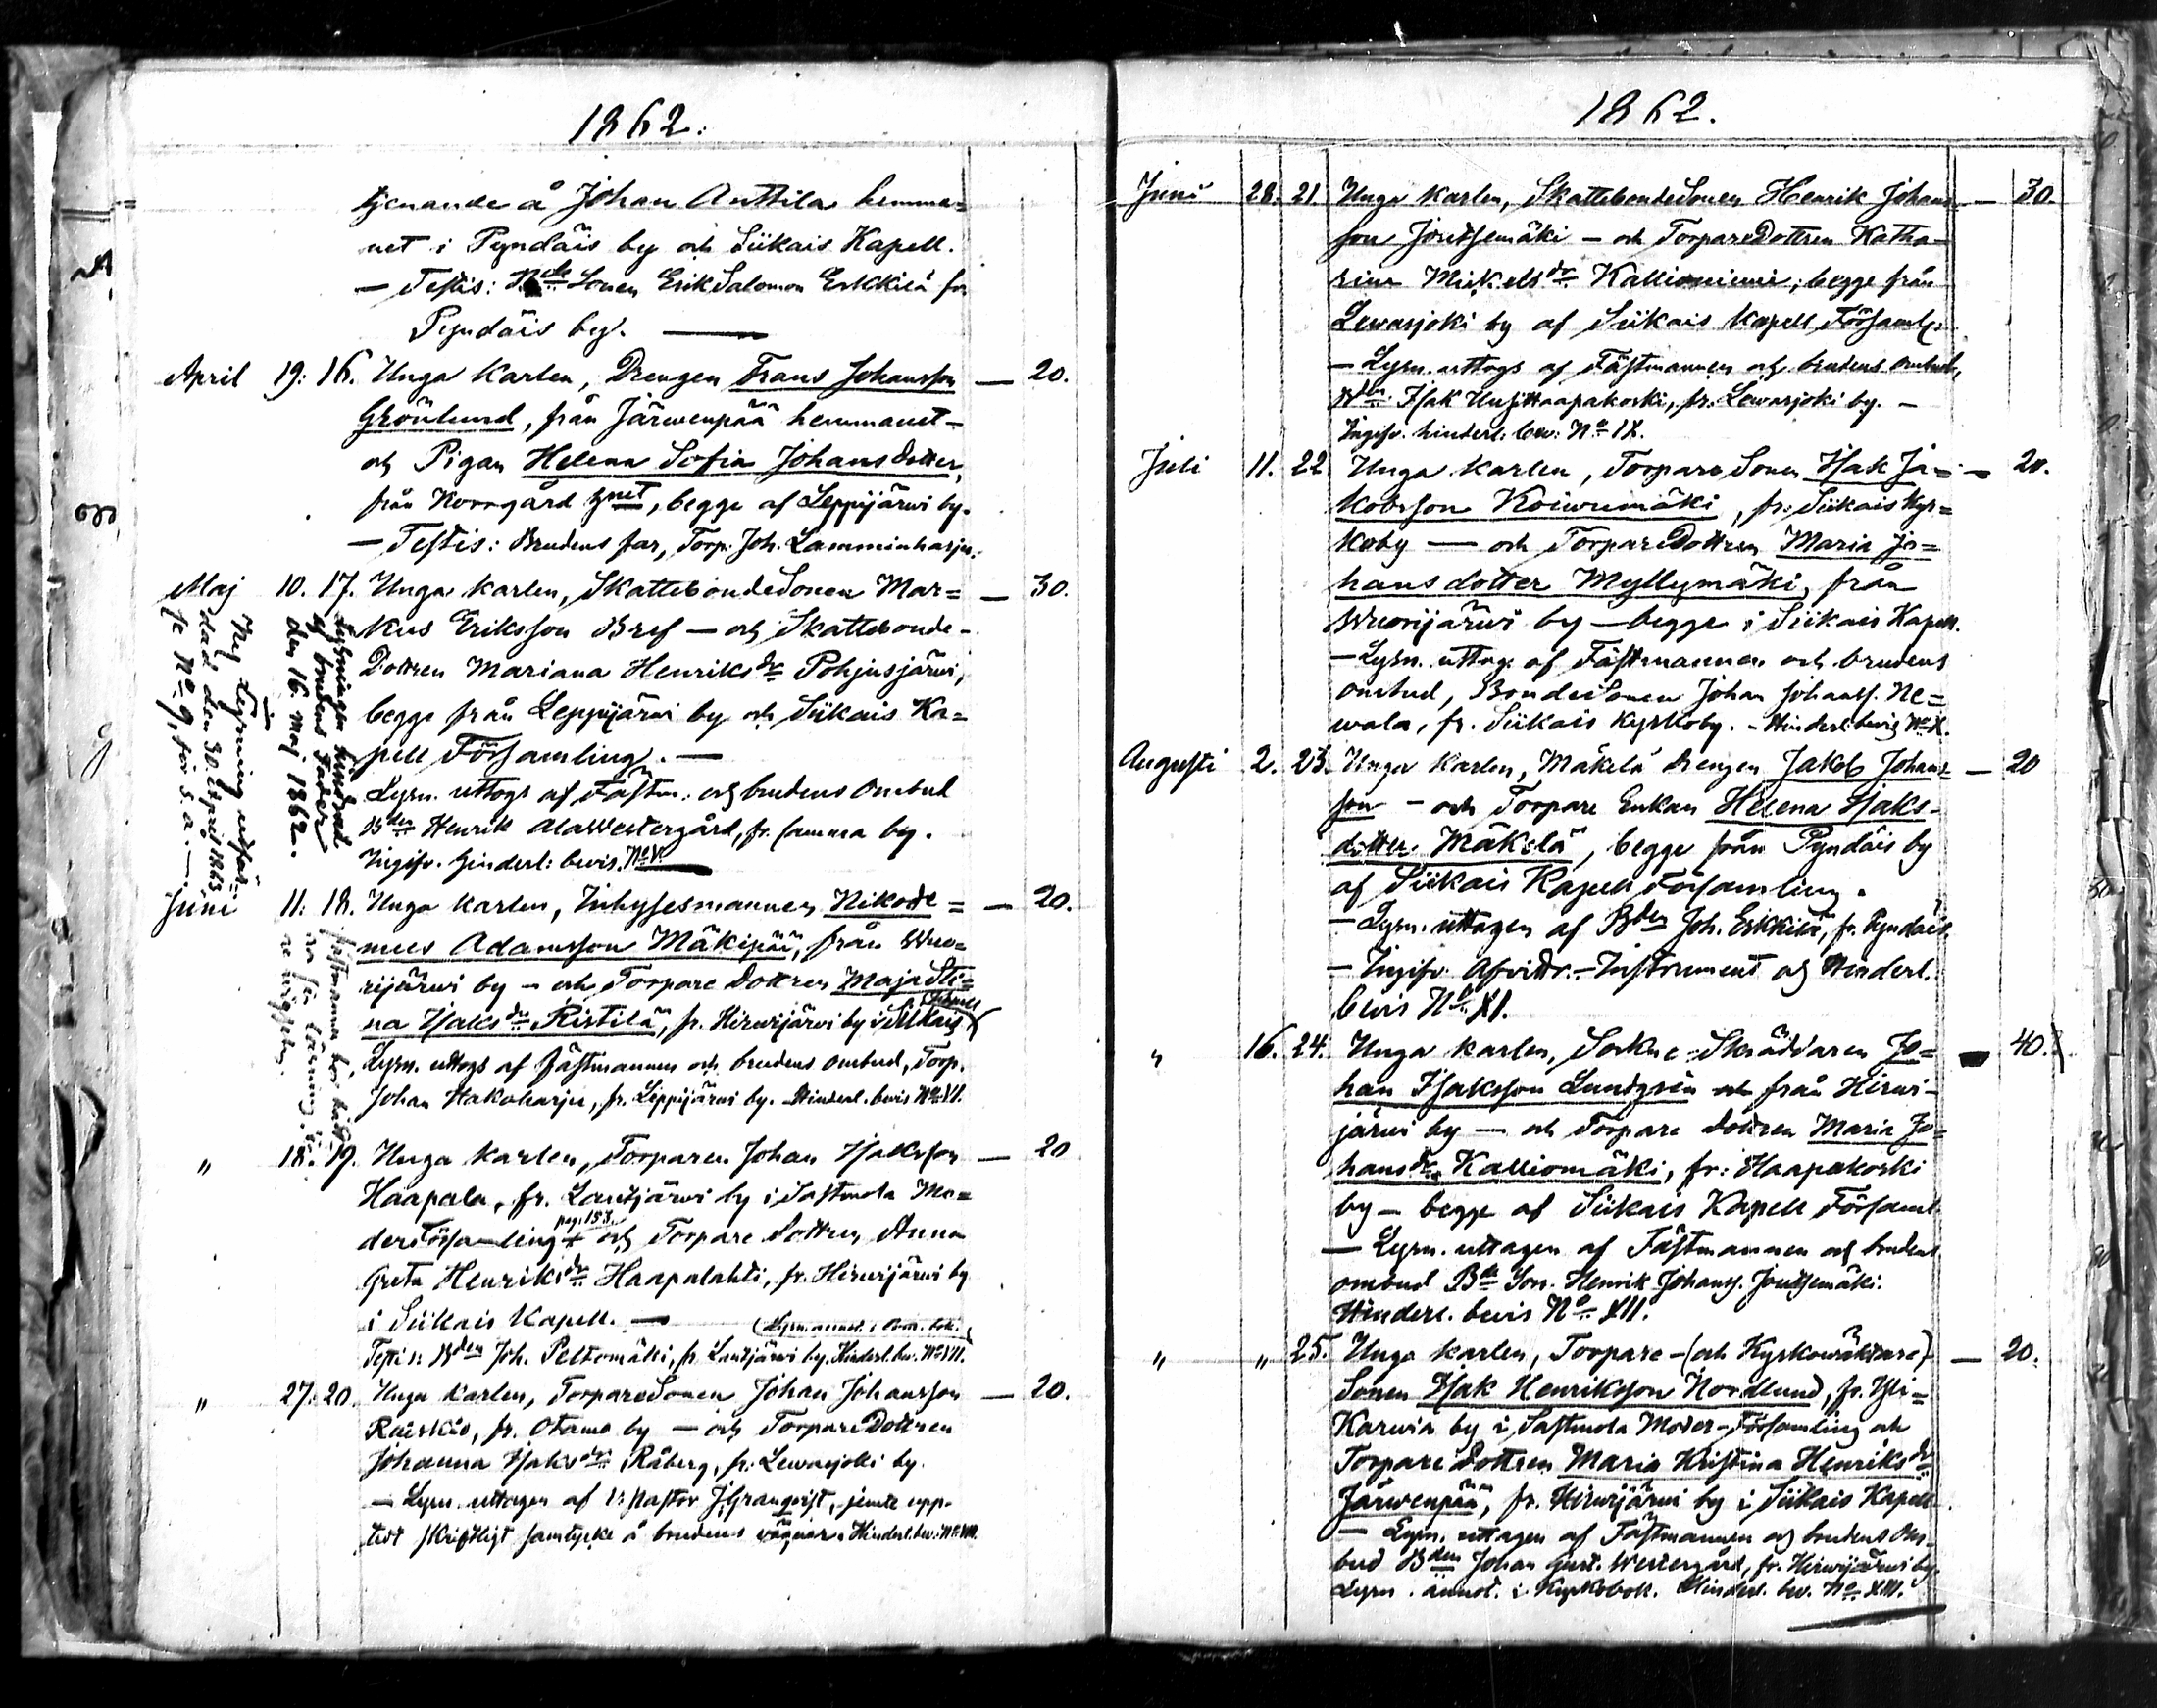 1862.
tjenande å Johan Anttila hemma=
net i Pyndäis by och Siikais Kapell.
— Testis: Sonen Erik Salomon Erkkilä fr.
Pyndäis by. —
April 19. 16. Unga Karlen, Drengen Frans Johansson — 20.
Grönlund, från Järwenpää hemmanet —
och Pigan Helena Sofia Johansdotter,
från Korrgård hnet, begge af Leppijärwi by.
— Testis: Brudens far, Torp. Joh. Lamminharju.
Maj 10. 17. Unga karlen, SkattebondeSonen Mar= — 30.
kus Eriksson Bref — och Skattebonde-
Dottren Mariana Henriksdr Pohjusjärwi,
begge från Leppijärwi by och Siikais Ka=
pell Församling. —
Lysn. uttogs af Fästm: och brudens Ombud
Bden Henrik AlaWestergård, fr. samma by.
Ingifv. hinderl: bevis. No V.
Lysningen hindrad
af brudens Fader
den 16 Maj 1862.
Ny Lysning utfär=
dad den 30 April 1863,
se No 9, för s. a. —.
Juni 11. 18. Unga karlen, Inhysesmannen Nikode= — 20.
mus Adamsson Mäkipää, från Wuo=
rijärwi by — och Torpare Dottren Maja Sti=
na Isaksdr Ristilä, fr. Hirwijärwi by i Siikais Kapell
Lysn. uttogs af Fästmannen och brudens ombud, Torp.
Johan Hakoharju, fr. Leppijärwi by. Hinderl. bevis No VI.
" 18. 19. Unga karlen, Torparen Johan Isaksson — 20
Haapala, fr. Lautjärwi by i Sastmola Mo=
derFörsamling + och Torpare Dottren, Anna
pag. 153.
Greta Henriksdr Haapalahti, fr. Hirwijärwi by
i Siikais Kapell. —
Testis: Bden Joh. Peltomäki, fr. Lautjärwi by. Hinderl. bev. No VII.
" 27. 20. Unga karlen, TorpareSonen Johan Johansson — 20.
Räiskiö, fr. Otamo by — och TorpareDottren
Johanna Isaksdr Råberg, fr. Lewasjoki by.
— Lysn. uttagen af V. Pastor J. Granqvist, jemte upp-
tedt skriftligt samtycke å brudens vägnar. Hinderl. bev. No VIII.
1862.
Juni 28. 21. Unga karlen, SkattebondeSonen Henrik Johans= — 30.
son Joutsemäki — och TorpareDottren Katha=
rina Mickelsdr Kallioniemi; begge från
Lewasjoki by af Siikais Kapell Församl:
— Lysn. uttogs af Fästmannen och brudens ombud,
Bden Isak Uusittaapakoski, fr. Lewasjoki by. —
Ingifv. hinderl: bev: No IX.
Juli 11. 22 Unga karlen, Torpare Sonen Isak Ja= — 20.
kobsson Koiwumäki, fr. Siikais Kyr=
koby — och TorpareDottren Maria Jo=
hansdotter Myllymäki, från
Wuorijärwi by — begge i Siikais Kapell.
— Lysn. uttog. af Fästmannen och brudens
ombud, BondeSonen Johan Johanss. Ne=
wala, fr. Siikais Kyrkoby. - Hinderl. bevis No X.
Augusti 2. 23. Unga karlen, Mäkelä drengen Jakob Johans= — 20
son — och Torpare Enkan Helena Isaks-
dotter Mäkelä, begge från Pyndäis by
af Siikais Kapell Församling.
— Lysn. uttagen af Bden Joh. Erkkilä, fr. Pyndäis.
— Ingifv. Afvittr.-Instrument och Hinderl.
bevis No XI.
" 16. 24. Unga karlen, Sockne-Skräddaren Jo= — 40.
han Isaksson Lundgrén och från Hirwi-
järwi by — och Torpare dottren Maria Jo=
hansdr Kalliomäki, fr: Haapakoski
by — begge af Siikais Kapell Församl.
— Lysn. uttagen af Fästmannen och brudens
ombud Bde Son. Henrik Johanss. Joutsemäki.
Hinderl. bevis No XII.
" " 25. Unga karlen, Torpare-(och Kyrkowäktare) — 20.
Sonen Isak Henriksson Nordlund, fr. Yli=
Karwia by i Sastmola Moder-Församling och
Torpare Dottren Maria Kristina Henriksdr
Järwenpää, fr. Hirwijärwi by i Siikais Kapell
— Lysn. uttagen af Fästmannen och brudens Om-
bud Bden Johan Gust. Westergård, fr. Hirwijärwi by.
Lysn. annot. i Kyrkobok. Hinderl. bev. No XIII.